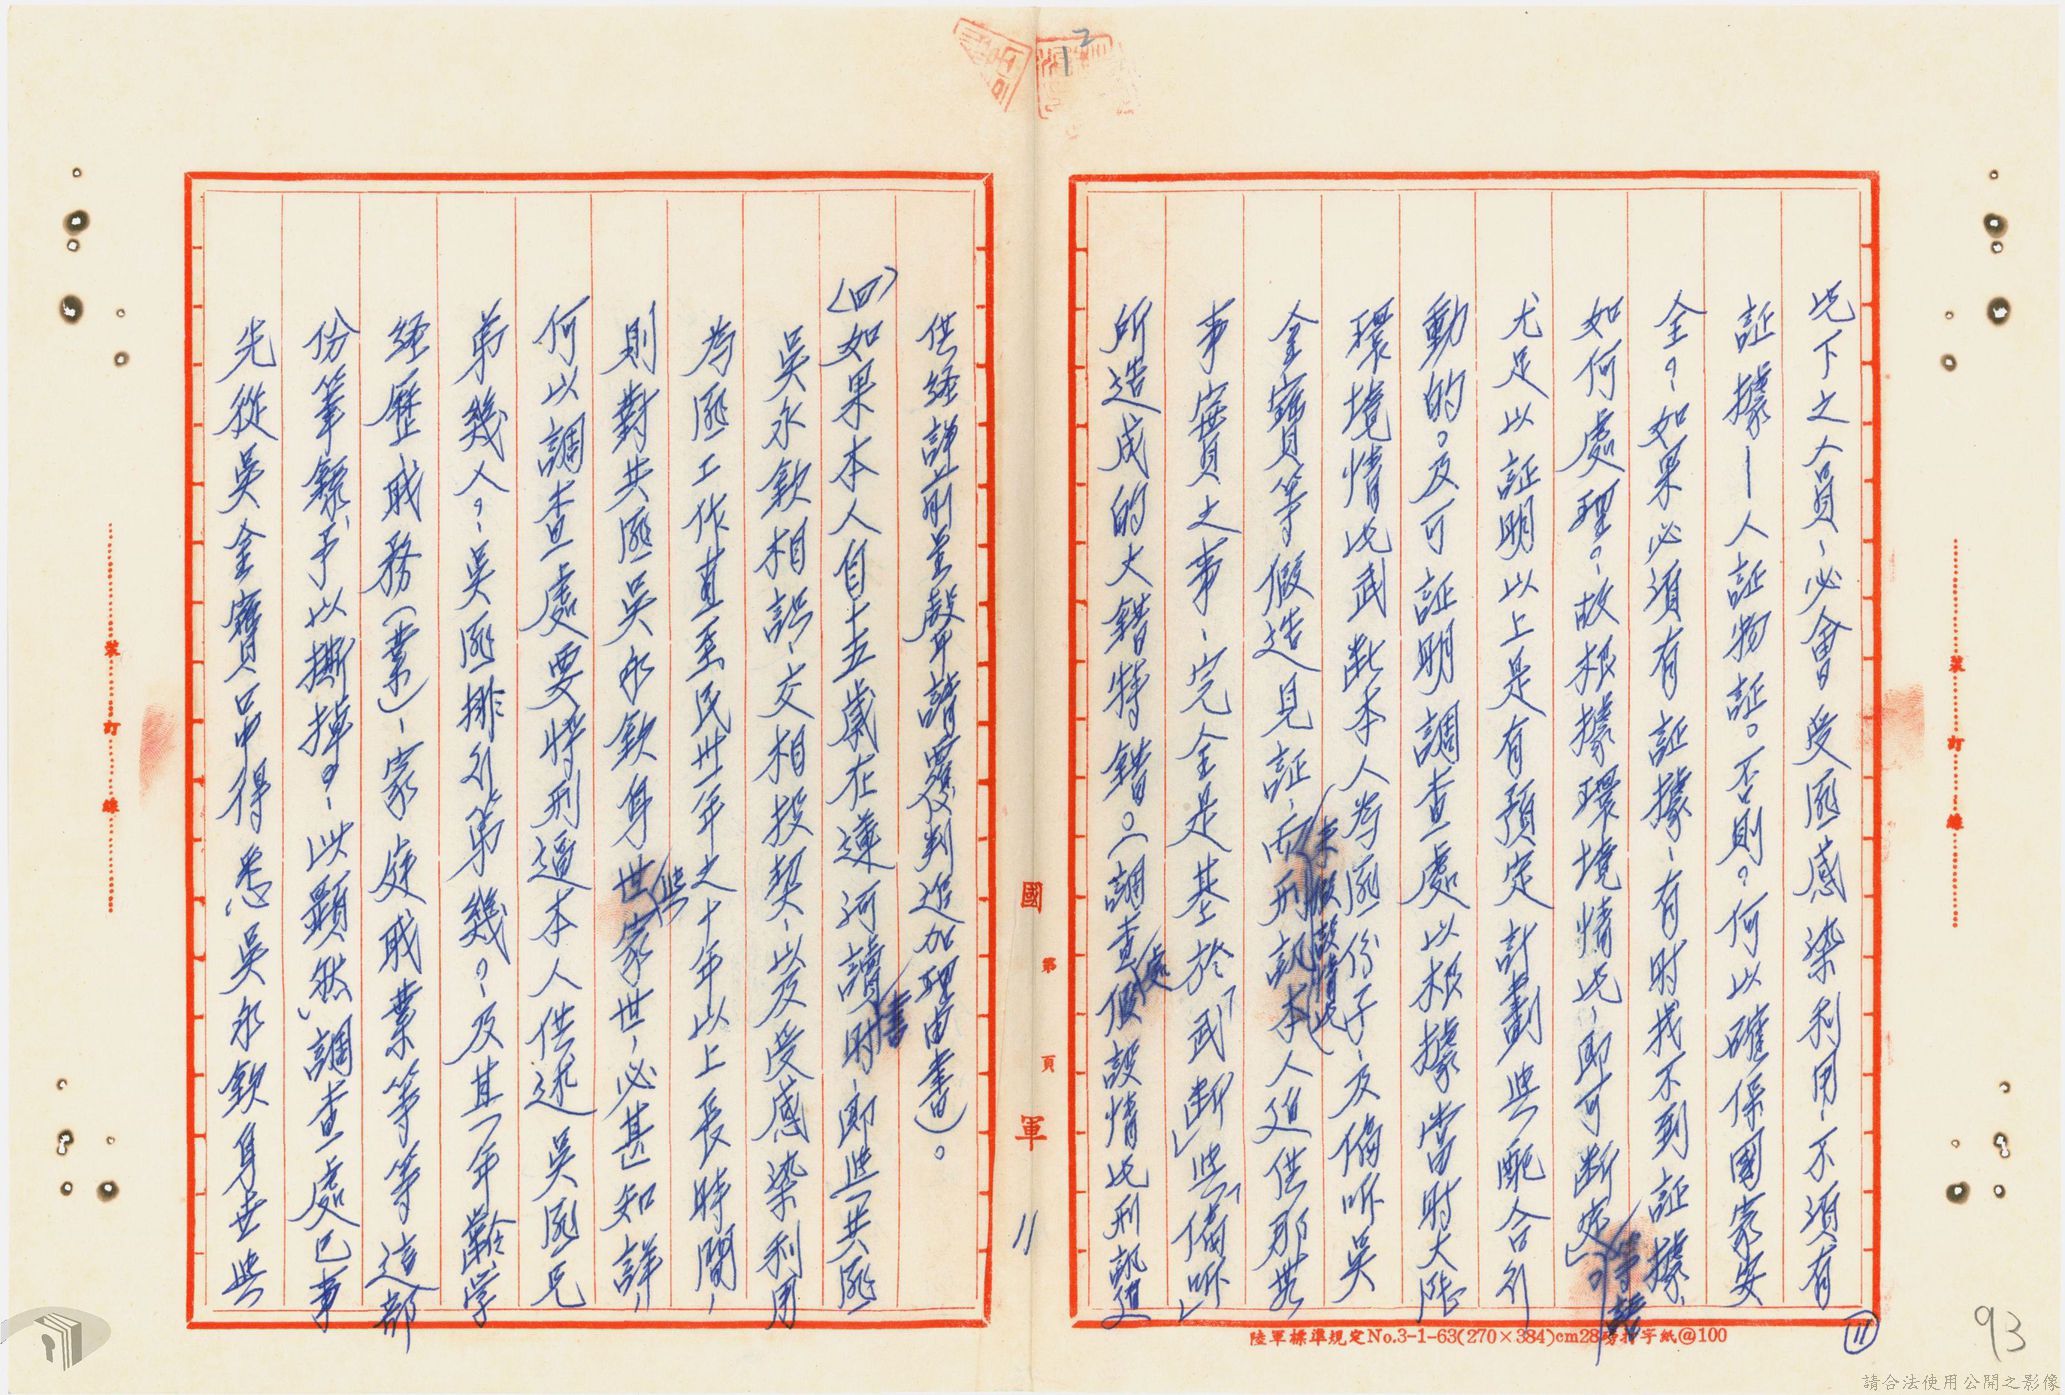 此下之人員、必會受匪感染利用、不須有
証據——人証物証。否則？何以確保國家安
全？如果必須有証據、有時找不到証據、
如何處理？故根據環境情況、即可斷定」等語。
尤足以証明以上是有預定計劃與配合行
動的。及可証明調查處以根據當時大陸
環境情況武斷本人為匪份子、及偽吓吳
金寶等假造見証、而刑訊本人迫供那無
來假設情況
事實之事、完全是基於「武斷」與「偽吓」
所造成的大錯特錯。（調查處假設情況刑訊迫
供經詳前呈聲請覆判追加理由書）。
(四)如果本人自十五歲在蓮河讀書時、即與共匪
吳永欽相識、交相投契、以及受感染利用
為匪工作直至民卅一年之十年以上長時間、
則對共匪吳永欽身世與家世、必甚知詳、
何以調查處要將刑逼本人供述吳匪兄
弟幾人？吳匪排行第幾？及其年齡學
經歷職務（業）、家庭職業等等這部
份筆錄予以撕掉？以此顯然調查處已事
先從吳金寶口中得悉吳永欽身世與
國軍
第 頁
11
裝訂線
裝訂線
陸軍標準規定No.3-1-63(270×384)cm28磅打字紙@100
11
12
93
請合法使用公開之影像